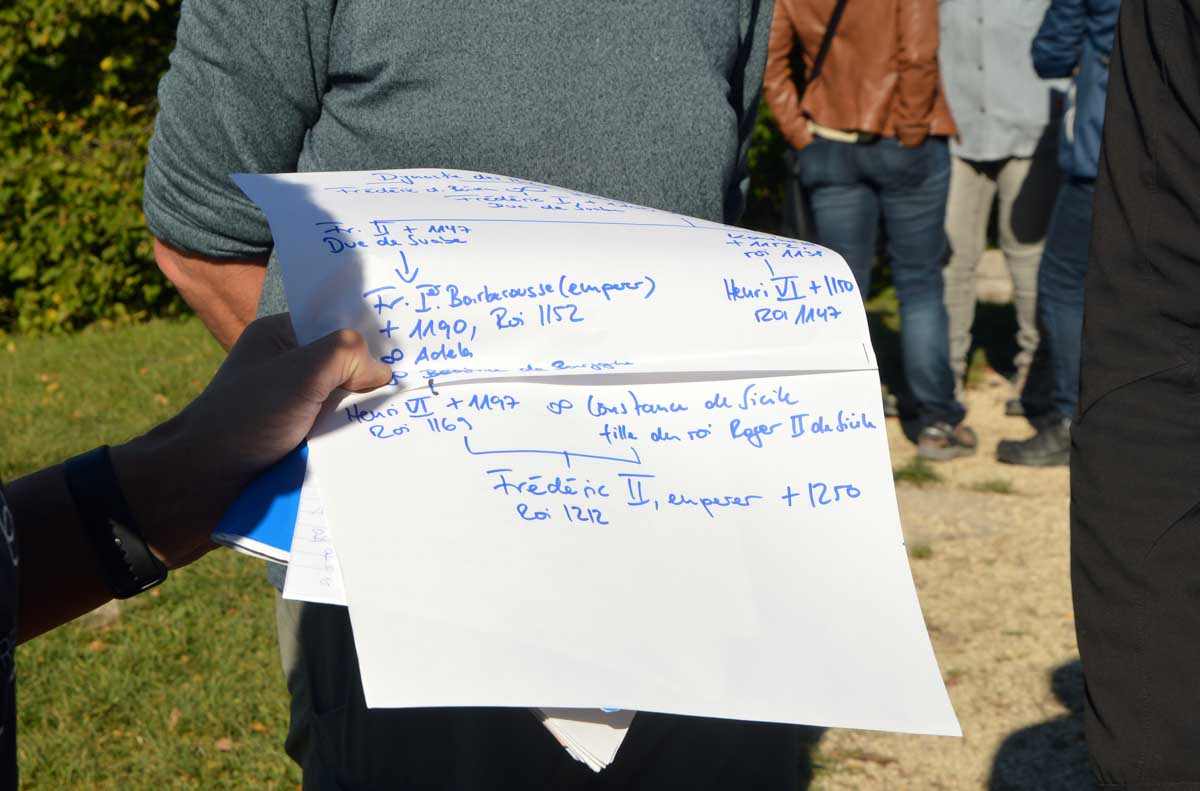 Dynastie des
Frédéric d. Büren
Frédéric I
Duc de
Fr. II + 1147
Duc de Suebe
+ 1152
roi 1138
Fr. Ier Barberousse (emperer)
+ 1190, Roi 1152
Henri VI + 1150
Roi 1147
∞ Adela
∞ de
Henri VI + 1197 ∞ Constance de Sicile
Roi 1169 fille du roi Roger II de Sicile
Frédéric II, emperer + 1250
Roi 1212